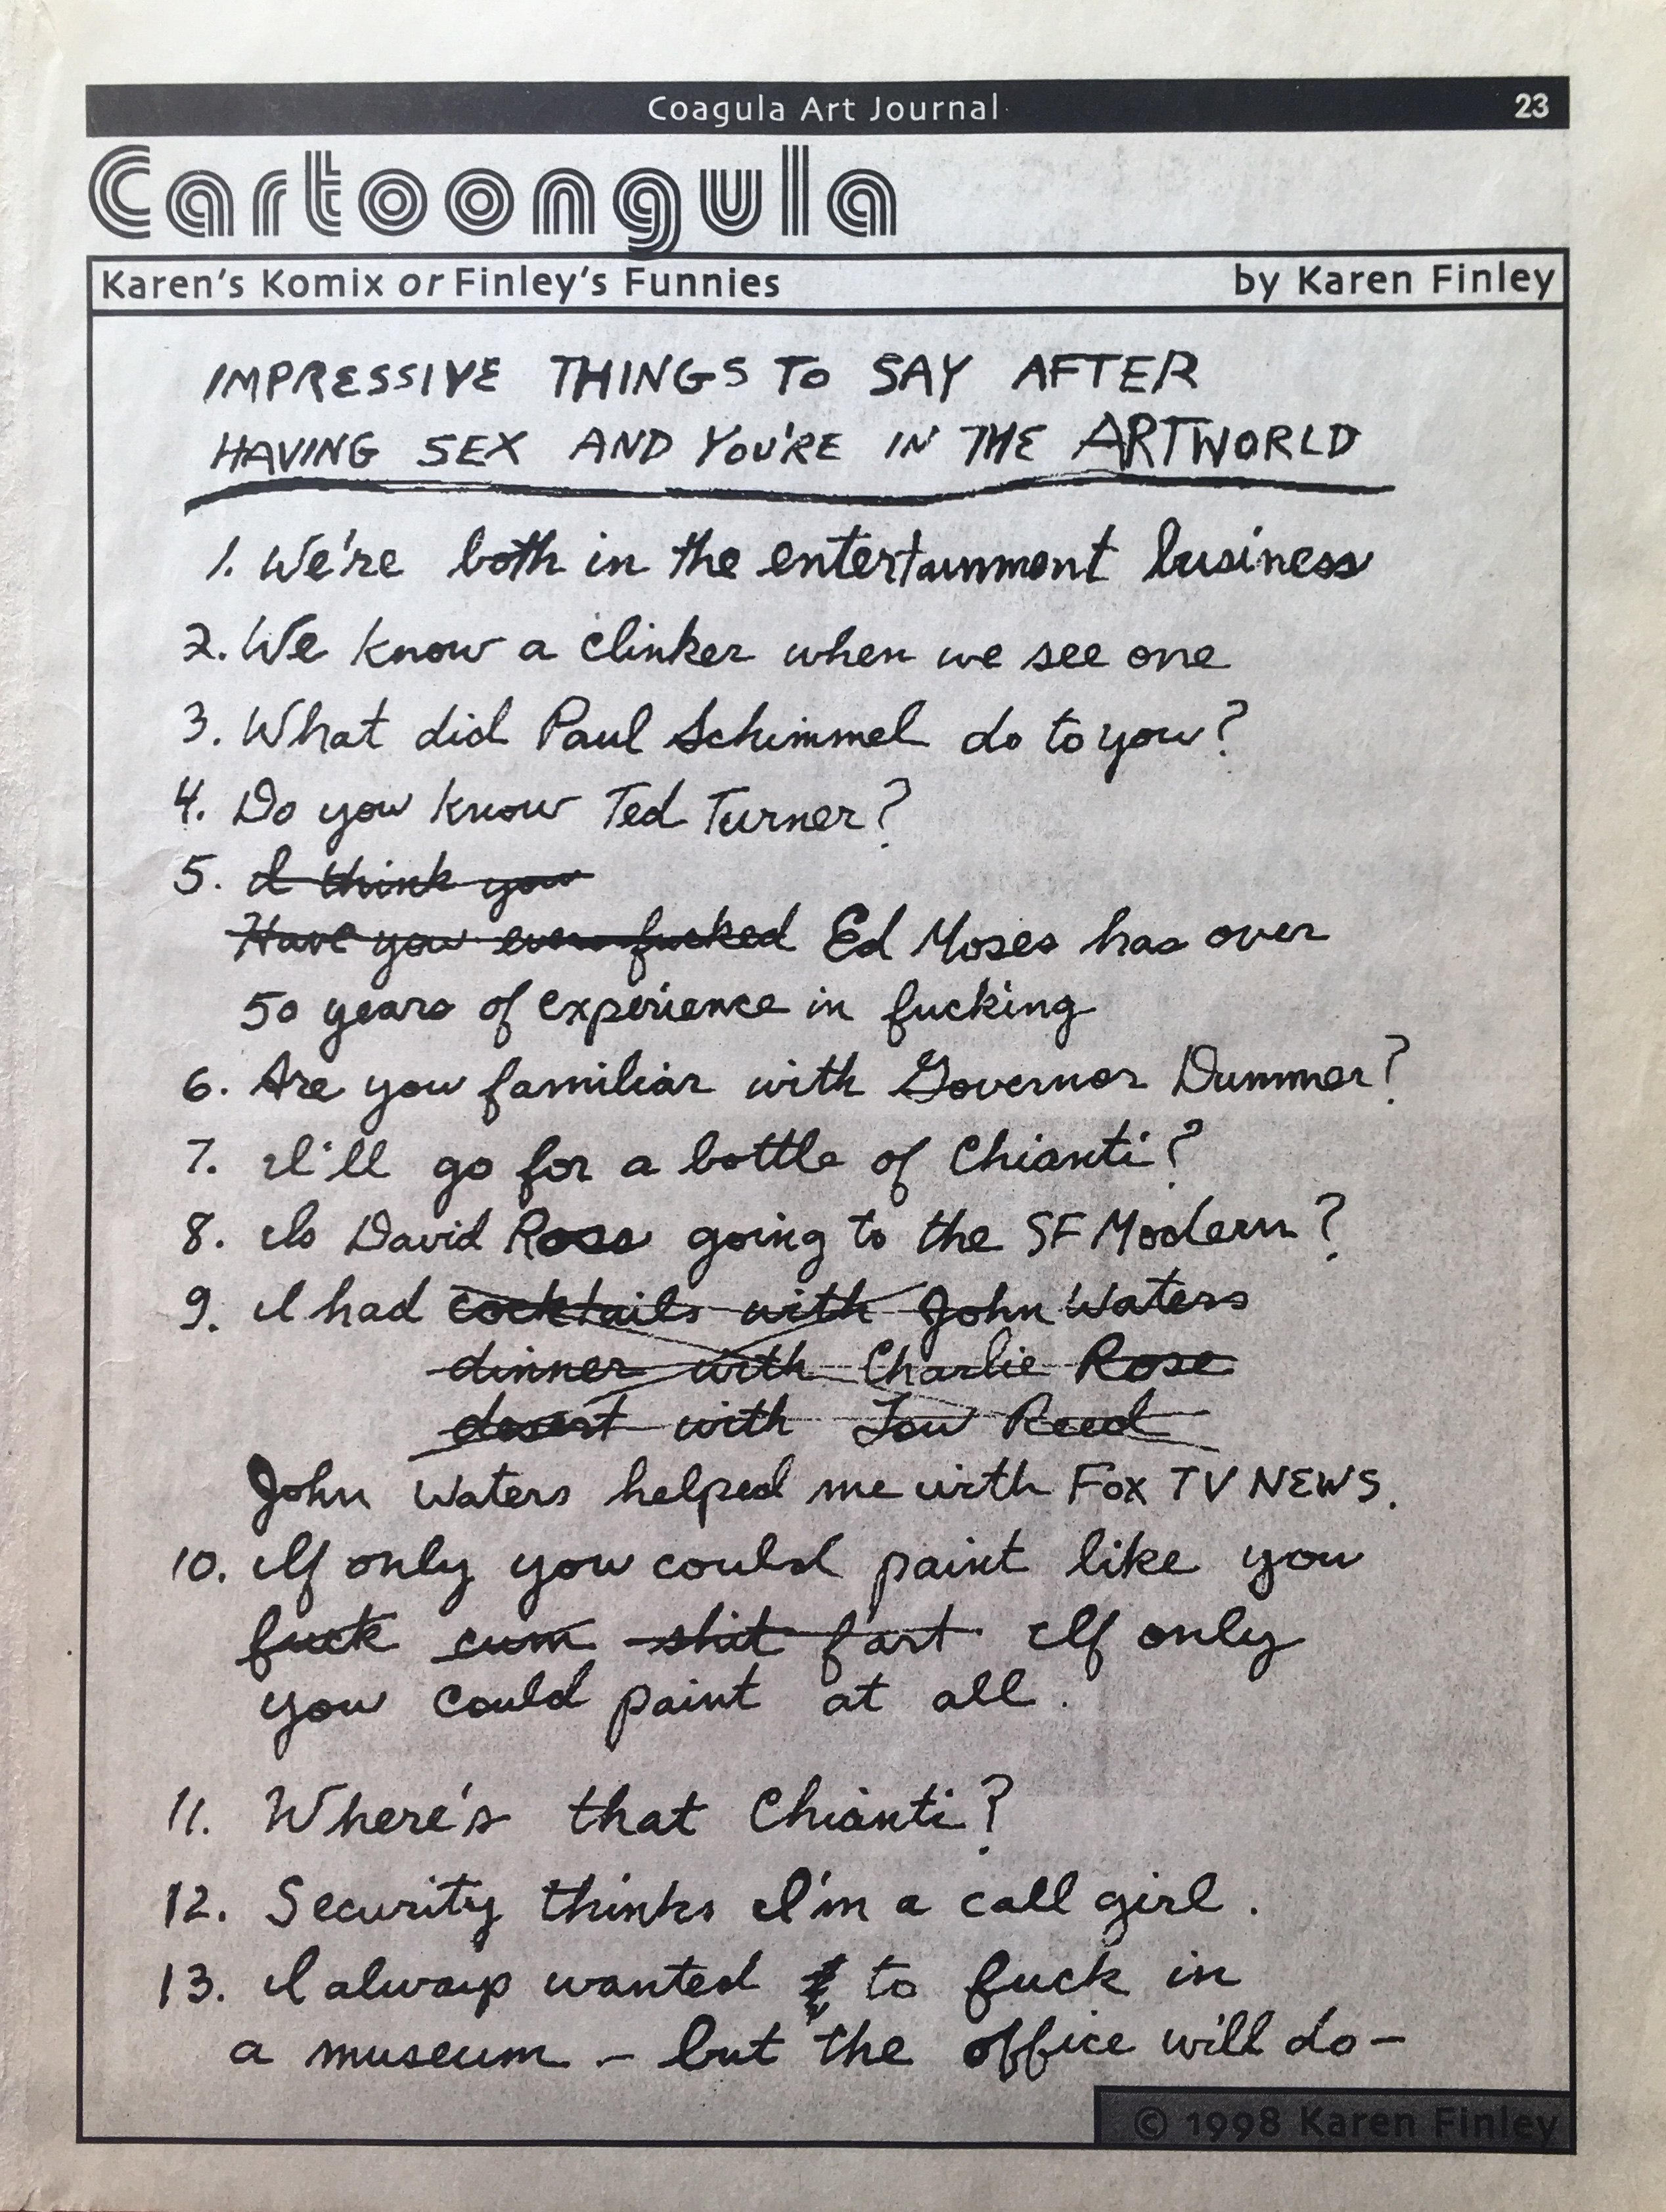 Coagula Art Journal 23
Cartoongula
Karen's Komix or Finley's Funnies by Karen Finley
IMPRESSIVE THINGS TO SAY AFTER
HAVING SEX AND YOU'RE IN THE ARTWORLD
1. We're both in the entertainment business
2. We know a clinker when we see one
3. What did Paul Schimmel do to you?
4. Do you know Ted Turner?
5. I think you
Have you ever fucked Ed Moses has over
50 years of experience in fucking
6. Are you familiar with Governor Dummer?
7. I'll go for a bottle of Chianti?
8. Is David Ross going to the SF Modern?
9. I had cocktails with John Waters
dinner with Charlie Rose
desert with Lou Reed
John Waters helped me with FOX TV NEWS.
10. If only you could paint like you
fuck cum shit fart If only
you could paint at all.
11. Where's that Chianti?
12. Security thinks I'm a call girl.
13. I always wanted to fuck in
a museum - but the office will do -
© 1998 Karen Finley